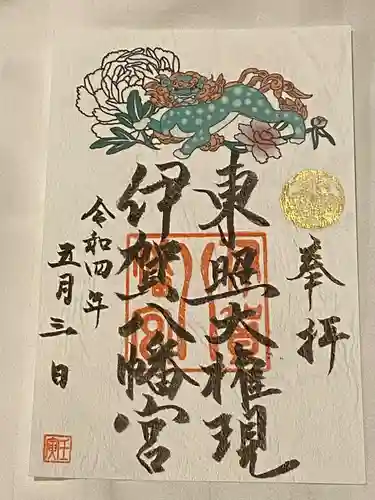 奉拝
東照大権現
伊賀八幡宮
令和四年
五月三日
壬寅